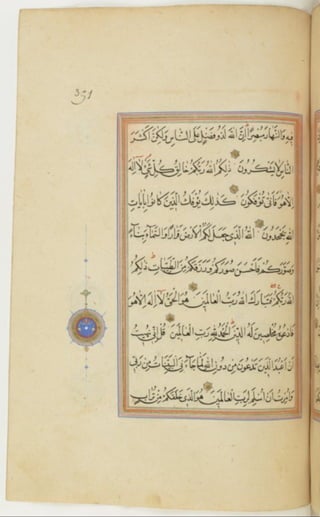 351
فِيهِ وَالنَّهَارَ مُبْصِرًا إِنَّ اللَّهَ لَذُو فَضْلٍ عَلَى النَّاسِ وَلَكِنَّ أَكْثَرَ
النَّاسِ لَا يَشْكُرُونَ ذَلِكُمُ اللَّهُ رَبُّكُمْ خَالِقُ كُلِّ شَيْءٍ لَا إِلَهَ
إِلَّا هُوَ فَأَنَّى تُؤْفَكُونَ كَذَلِكَ يُؤْفَكُ الَّذِينَ كَانُوا بِآيَاتِ
اللَّهِ يَجْحَدُونَ اللَّهُ الَّذِي جَعَلَ لَكُمُ الْأَرْضَ قَرَارًا وَالسَّمَاءَ بِنَاءً
وَصَوَّرَكُمْ فَأَحْسَنَ صُوَرَكُمْ وَرَزَقَكُمْ مِنَ الطَّيِّبَاتِ ذَلِكُمُ
اللَّهُ رَبُّكُمْ فَتَبَارَكَ اللَّهُ رَبُّ الْعَالَمِينَ هُوَ الْحَيُّ لَا إِلَهَ إِلَّا هُوَ
فَادْعُوهُ مُخْلِصِينَ لَهُ الدِّينَ الْحَمْدُ لِلَّهِ رَبِّ الْعَالَمِينَ قُلْ إِنِّي نُهِيتُ
أَنْ أَعْبُدَ الَّذِينَ تَدْعُونَ مِنْ دُونِ اللَّهِ لَمَّا جَاءَنِيَ الْبَيِّنَاتُ مِنْ رَبِّي
وَأُمِرْتُ أَنْ أُسْلِمَ لِرَبِّ الْعَالَمِينَ هُوَ الَّذِي خَلَقَكُمْ مِنْ تُرَابٍ